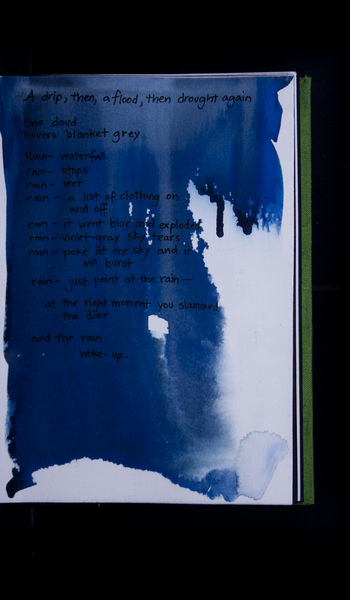 A drip, then, a flood, then drought again
One cloud
hovers blanket grey
Rain- waterfall
rain- stops
rain- wet
rain- a list of clothing on
and off
rain- it went blue and explodes
rain- violet-array sky tears
rain- poke at the sky and it
will burst
rain- just point at the rain-
at the right moment you slammed
the door
and the rain
woke-up.